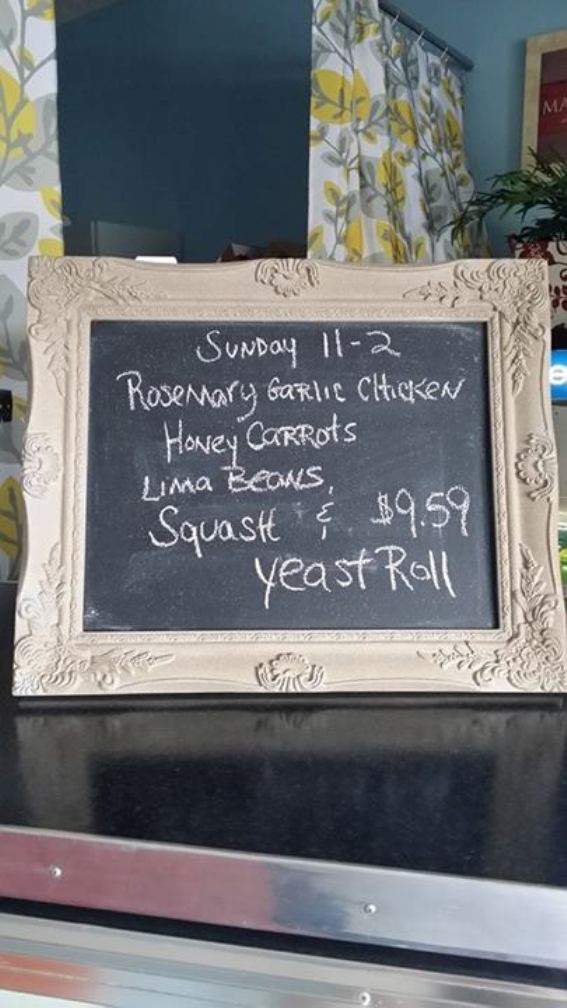 SUNDAY 11-2
ROSEMARY GARLIC CHICKEN
HONEY CARROTS
LIMA BEANS,
SQUASH & $9.59
yeast Roll
MA